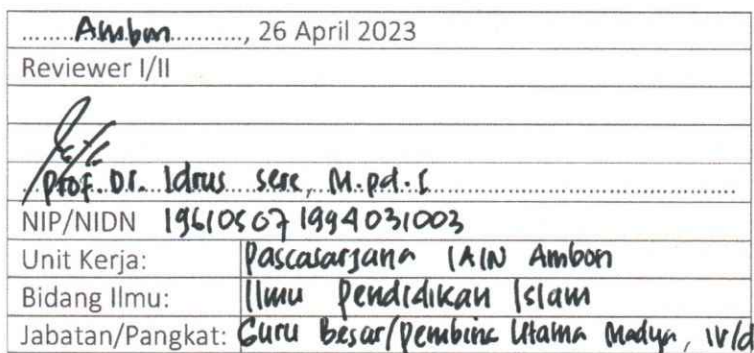 ........Ambon............, 26 April 2023
Reviewer I/II
Prof. Dr. Idrus Sere, M.pd.I
NIP/NIDN 196105071994031003
Unit Kerja: Pascasarjana IAIN Ambon
Bidang Ilmu: Ilmu Pendidikan Islam
Jabatan/Pangkat: Guru Besar/Pembina Utama Madya, IV/d